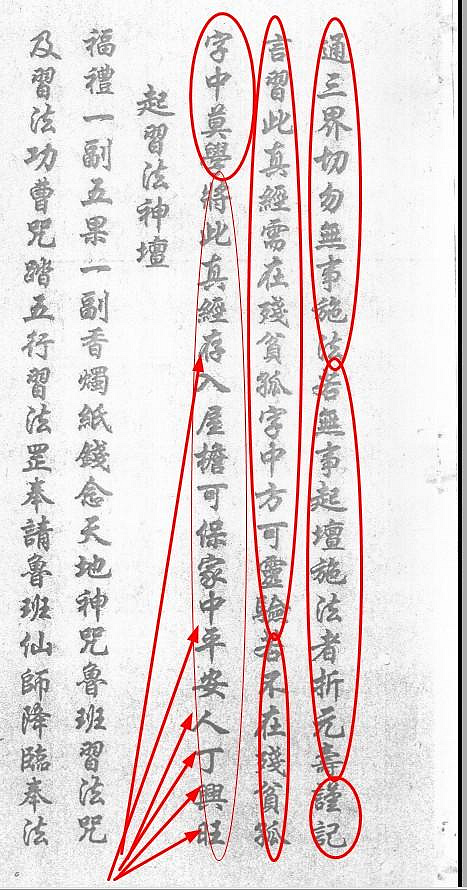 通三界切勿無事施法若無事起壇施法者折元壽謹記
言習此真經需在殘貧孤字中方可靈驗若不在殘貧孤
字中莫學將此真經存入屋檐可保家中平安人丁興旺
起習法神壇
福禮一副五果一副香燭紙錢念天地神咒魯班習法咒
及習法功曹咒踏五行習法罡奉請魯班仙師降臨奉法